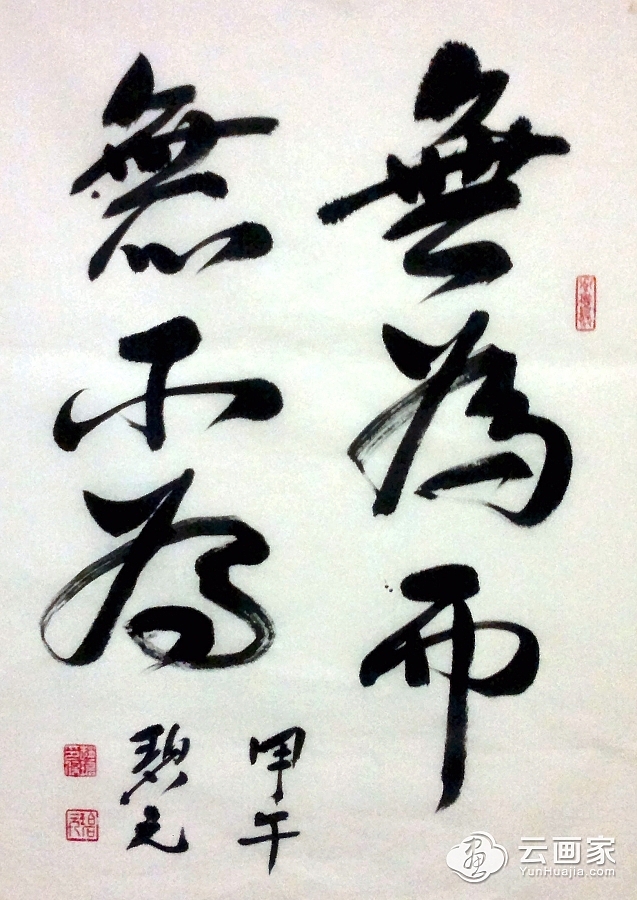 無為而
無不為
甲午
碧元
云画家
YunHuajia.com